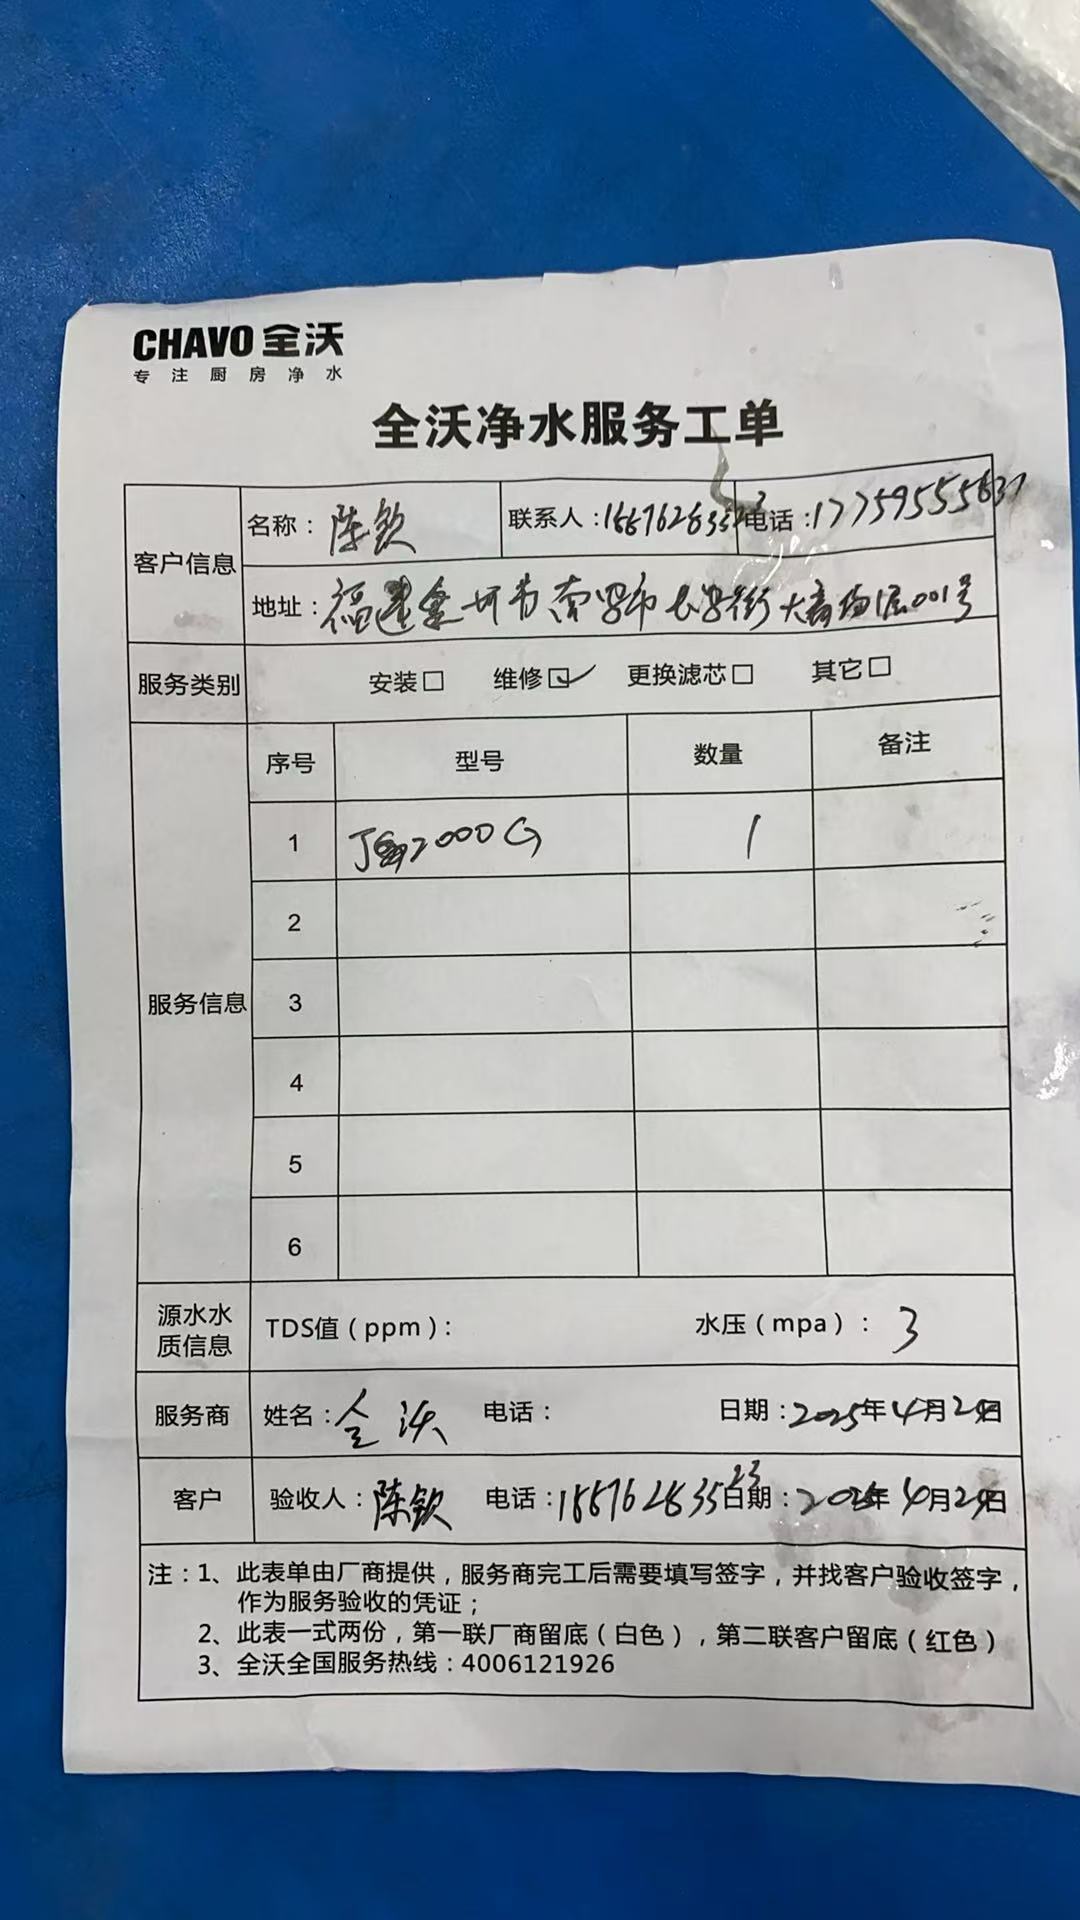 CHAVO 全沃
专注厨房净水
全沃净水服务工单
客户信息
名称：陈钦 联系人： 电话：
地址：福建 南 市 街 001号
服务类别 安装□ 维修☑ 更换滤芯□ 其它□
服务信息
序号 型号 数量 备注
1 2000G 1
2
3
4
5
6
源水水质信息 TDS值（ppm）： 水压（mpa）：3
服务商 姓名：全沃 电话： 日期：2025年4月2 日
客户 验收人：陈钦 电话： 日期：2025年4月2 日
注：1、此表单由厂商提供，服务商完工后需要填写签字，并找客户验收签字，
作为服务验收的凭证；
2、此表一式两份，第一联厂商留底（白色），第二联客户留底（红色）
3、全沃全国服务热线：4006121926